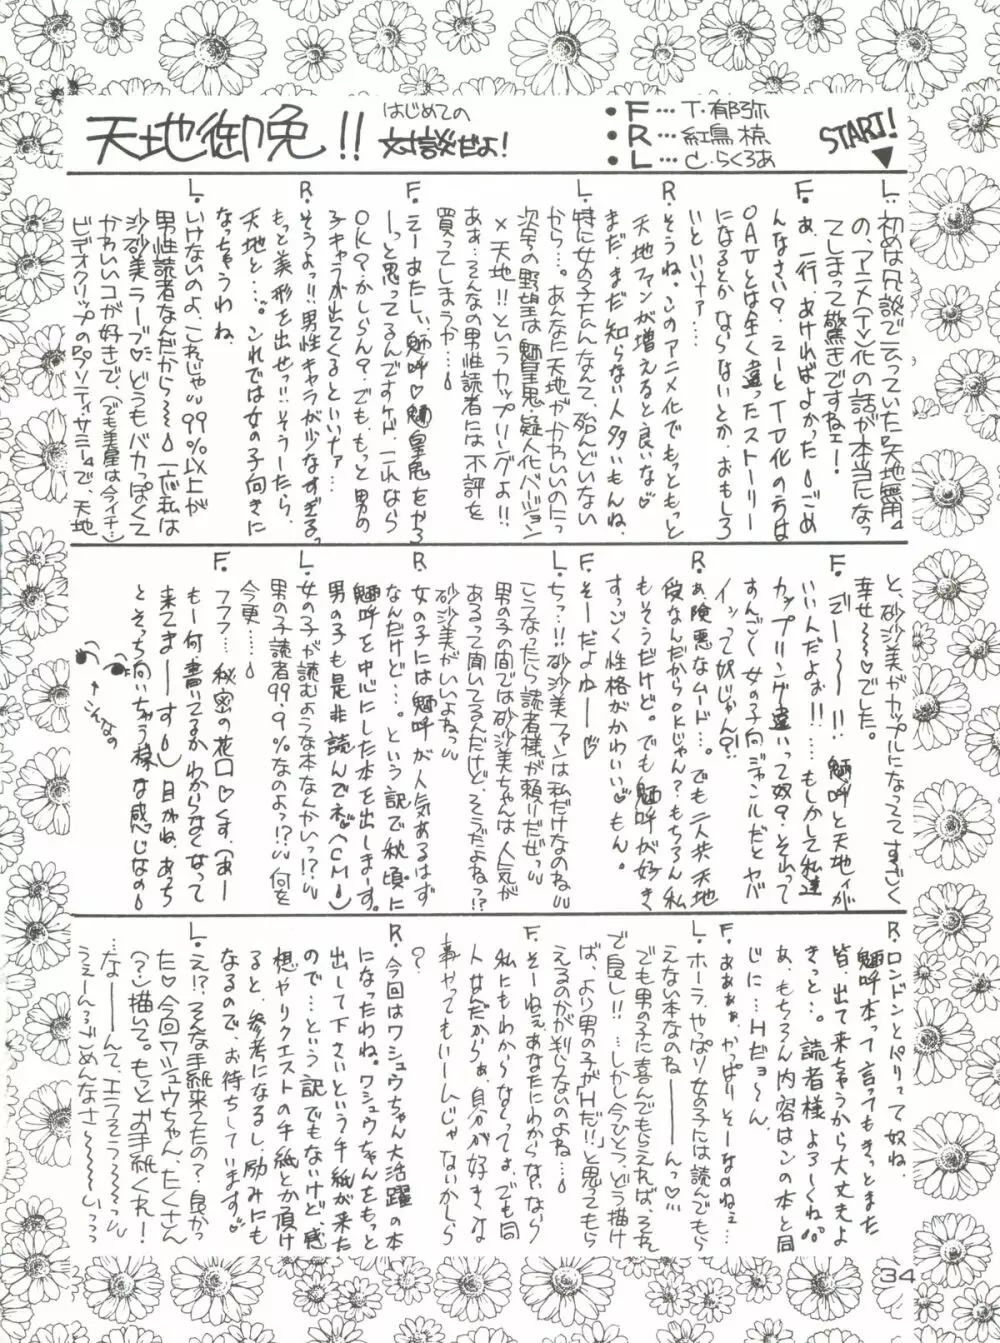 天地御免!!
はじめての
対談せよ!
・F… T・郁弥
・R… 紅鳥 椋
・L… C・らくろあ
START!
L. 初めは冗談で云っていた『天地無用』
の(アニメ)TV化の話が本当になっ
てしまって驚きですねェー!
F. あ、一行、あければよかった。ごめ
んなさい? えーとTV化の方は
OAVとは全く違ったストーリー
になるとかならないとか。おもしろ
いといいナァー…
R. そうね。このアニメ化でもっともっと
天地ファンが増えると良いな♡
まだ、まだ知らない人多いもんね。
L. 特に女の子Fanなんて、殆んどいない
から…。あんなに天地がかわいいのにっ
次号の野望は魎皇鬼・疑人化バージョン
×天地!!というカップリングよ!!
あぁ…そんなの男性読者には不評を
買ってしまうか…
F. えーあたし、魎呼♡魎皇鬼をやろ
ーっと思ってるんですケド、これなら
OK?かしらん?でも、もっと男の
子キャラが出てくるといいナァ
R. そうよっ!!男性キャラが少なすぎるっ
もっと美形を出せっ!!そうーしたら、
天地と…。これでは女の子向きに
なっちゃうわね
L. いけないのよ、これじゃ〃99%以上が
男性読者なんだから〜〜 一応私は
沙沙美ラーブ♡どうもバカっぽくて
かわいいコが好きで、(でも美星は今イチ…)
ビデオクリップの『プリティ・サミー』で、天地
と、砂沙美がカップルになってて、すごく
幸せ〜〜〜♡でした。
F. 『でー〜〜!! 魎呼と天地ィが
いいんだよぉ!!……もしかして私達
カップリング違いって奴?、それって
すんごく〜女の子向ジャンルだとヤバ
イッって奴じゃん?!
R. あ、険悪なムード…。でも二人共天地
受なんだからOKじゃん?もちろん私
もそうだけど。でも魎呼が好き
すっごく性格がかわいい♡もん。
F. そーだよゆー♡
L. ちっ…!!砂沙美ファンは私だけなのね〃
こうなったら読者様が頼りだぜっ〃
男の子の間では砂沙美ちゃんは人気が
あるって聞いてるんだけど、そうだよね?!
砂沙美がいいよねっ〃
R. 女の子には魎呼が人気あるはず
なんだけど…。という訳で秋頃に
魎呼を中心にした本を出しまーす。
男の子も是非読んでネ♡(CM)
L. 女の子が読むような本なんかいっ!?〃
男の子読者99.9%なのよっ!?〃何を
今更…
F. フフフ…秘密の花口♡くす、(あー
もー何書いてるかわからなくなって
来てまーーす) 目がね、あち
とそっち向いちゃう様な感じなの
↑こんなの
R. ロンドンとパリって奴ね。
魎呼本って言ってもきっとまた
皆、出て来ちゃうから大丈夫よ
きっと…。読者様よろーくね。
あ、もちろん内容はこの本と同
じに…Hだョ〜ん
F. あああぁ、かっぱりそーなのねェ…
L. ホーラ、やっぱり女の子には読んでもら
えない本なのねーーーんっ♡〃
でも男の子に喜んでもらえれば、それ
で良し!!……しかし今ひとつ、どう描け
ば、より男の子が『Hだ!!』と思ってもら
えるのかが判らないのよね…
F. そーねぇあなたにわからない、なら
私にもわからなくってよ、でも同
人なんだからぁ、自分が好きな
事やってもいーんじゃないかしら
?
R. 今回はワシュウちゃん大活躍の本
になったわね。ワシュウちゃんをもっと
出して下さいという手紙が来た
ので…という訳でもないけど感
想やリクエストの手紙とか頂け
ると、参考になるし、励みにも
なるので、お待ちしています♡
L. え!?そんな手紙来てたの?良かっ
た♡今回ワシュウちゃん、たくさん
(?)描いて。もっとお手紙くれー!
…なーーんて、エラそう〜〜っ〃
うぇーん、ごめんなさ〜〜〜いっっ
34